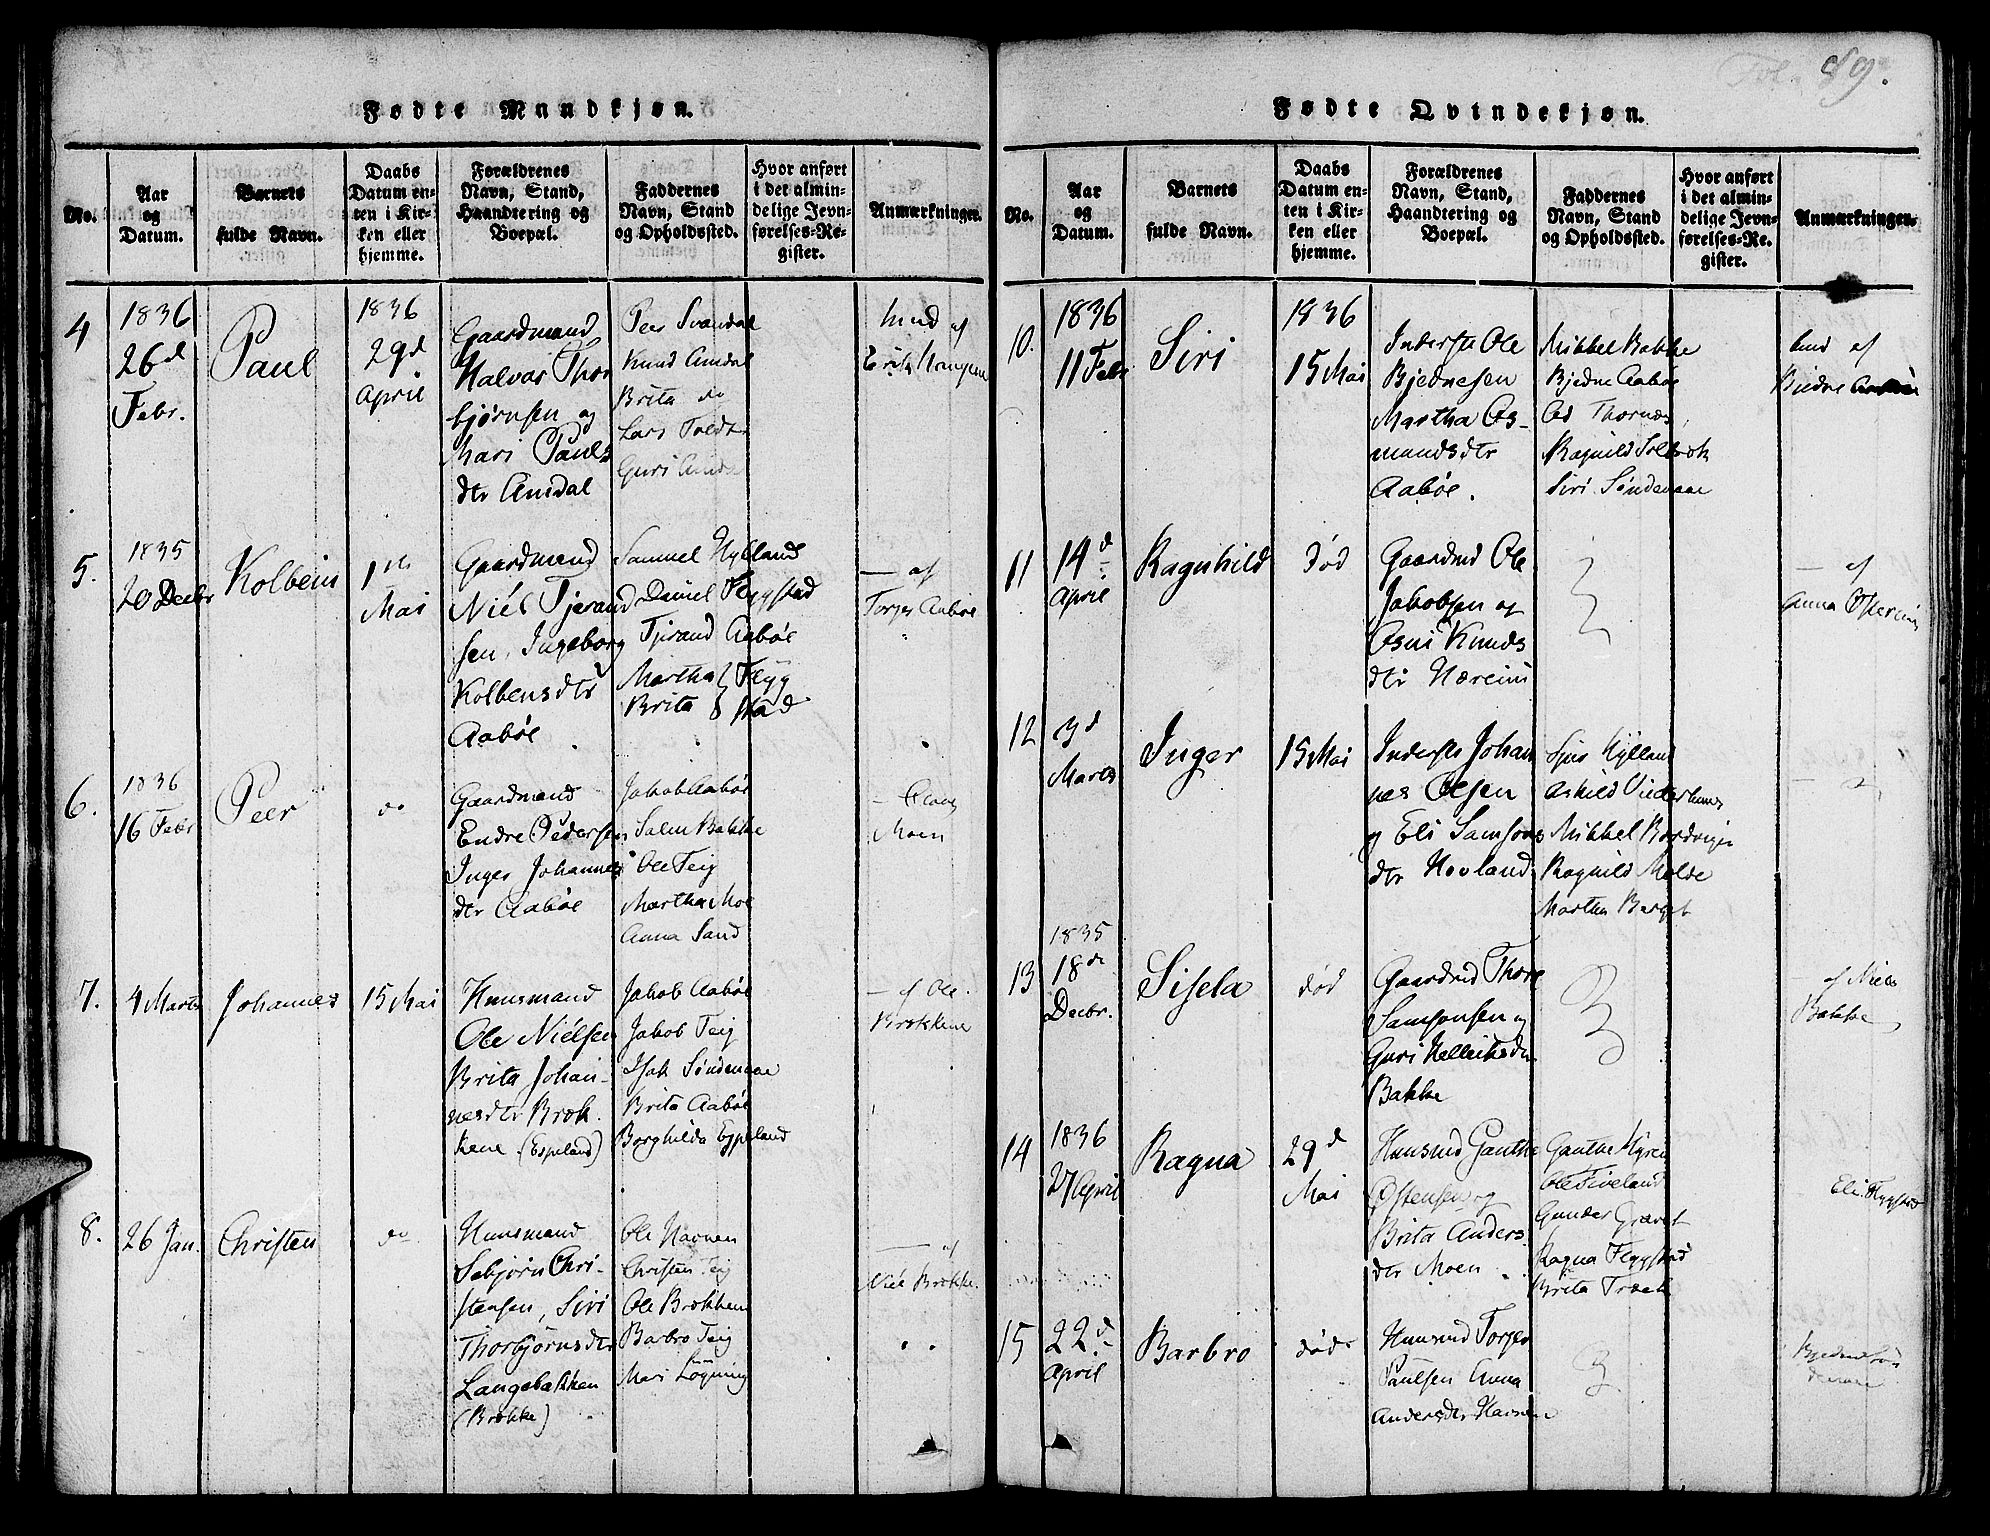 Fol. 89.
Fødte Mandkjøn.
No.
Aar og Datum.
Barnets fulde Navn.
Daabs Datum enten i Kirken eller hjemme.
Forældrenes Navn, Stand, Haandtering og Boepæl.
Faddernes Navn, Stand og Opholdssted.
Hvor anført i det almindelige Jevnførelses-Register.
Anmærkninger.
4
1836
26d
Febr.
Paul
1836
29d
April
Gaardmand
Halvar Thor
bjørnsen og
Mari Pauls
dtr Amdal
Peer Svandal
Knud Amdal
Brita do
Lars
Guri Amdal
hmd af
Erik
5.
1835
20 Decbr
Kolbein
1ste
Mai
Gaardmand
Niél Tjerand
sen, Ingeborg
Kolbensdtr
Aabøe
Samuel Hylland
Daniel Flygstad
Tjerand Aabøe
Martha } Flyg
Brita } stad
— af
Torger Aabøe
6.
1836
16 Febr
Peer
do
Gaardmand
Endre Pedersen
Inger Johannes
dtr Aabøe
Jakob Aabøe
Salm Bakke
Ole Teig
Martha Moe
Anna Sand
—
Moen
7.
4 Marts
Johannes
15 Mai
Huusmand
Ole Nielsen
Brita Johan-
nesdtr Brok
kene (Espeland)
Jakob Aabøe
Jakob Teig
Isak Søndenaae
Brita Aabøe
Borghilda Espeland
— af Ole
Brokkene
8.
26 Jan.
Christen
do
Huusmand
Sebjørn Chri-
stensen, Siri
Thorbjørnsdtr
Langebakken
(Brokke)
Ole Havnen
Christen Teig
Ole Brokken
Barbro Teig
Mari Løgning
— af
Niél Brokke.
Fødte Qvindekjøn.
No.
Aar og Datum.
Barnets fulde Navn.
Daabs Datum enten i Kirken eller hjemme.
Forældrenes Navn, Stand, Haandtering og Boepæl.
Faddernes Navn, Stand og Opholdssted.
Hvor anført i det almindelige Jevnførelses-Register.
Anmærkninger.
10.
1836
11 Febr
Siri
1836
15 Mai
Inderste Ole
Bjednesen
Martha Os-
mundsdtr
Aabøe.
Mikkel Bakke
Bjedne Aabøe
Od Thornes
Ragnild Solbrek
Siri Søndenaae
hmd af
Bjedne
11
14d
April
Ragnhild
død
Gaardmd Ole
Jakobsen og
Osni Knuds
dtr Hæreim
— af
Anna
12
3d
Marts
Inger
15 Mai
Inderste Johan
nes Olsen
og Eli Samsons
dtr Hovland
Sjur Hylland
Askild
Mikkel
Ragnild Molde
Martha Berget
—
13
1835
18de
Decbr.
Sisela
død
Gaardmd Thore
Samsonsen og
Guri Helleiksdtr
Bakke
— af Niels
Bakke
14
1836
27 April
Ragna
29d
Mai
Huusmd Gauthe
Østensen og
Brita Anders
dtr Moen
Gauthe
Ole Tveland
Gunder
Ragna Flygstad
Brita Træet
Eli Flygstad
15
22d
April
Barbro
død
Huusmd Torger
Paulsen Anna
Andersdtr Havnen
Bjedne Søn
denaae